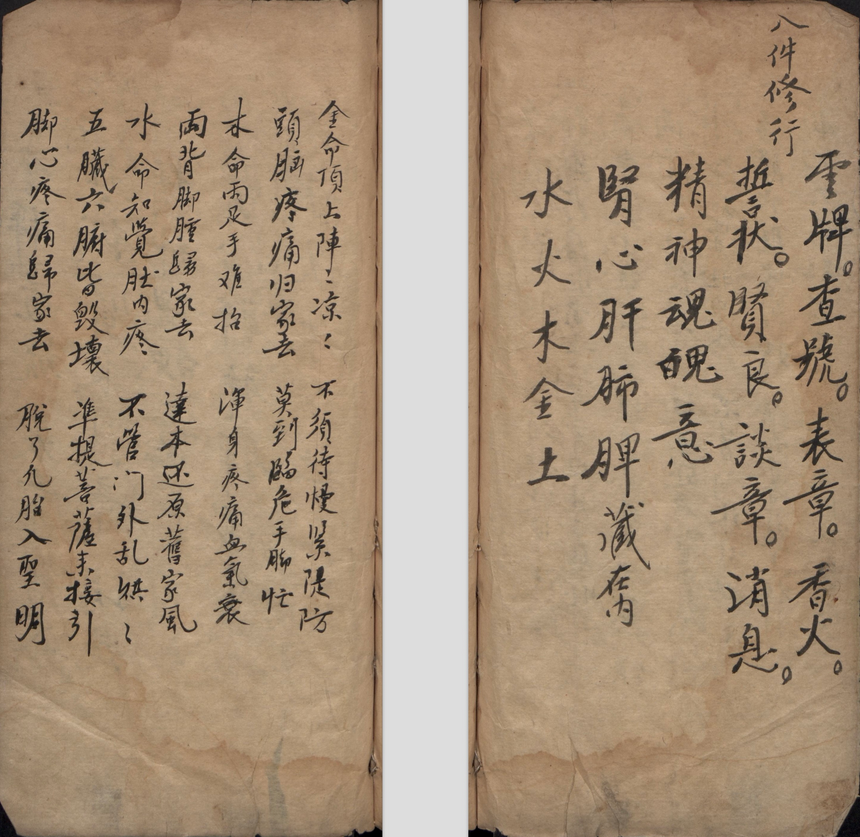 八件修行
雲牌。查號。表章。香火。
誓狀。賢良。談章。消息。
精神魂魄意
腎心肝肺脾藏在內
水火木金土
金命頂上陣〻凉〻 不須待慢緊隄防
頭脑疼痛归家去 莫到臨危手脚忙
木命両足手难抬 渾身疼痛血氣衰
両背脚腫歸家去 達本还原舊家風
水命知覺肚内疼 不管门外乱烘〻
五臟六腑皆毀壞 凖提菩薩来接引
脚心疼痛歸家去 脫了凡胎入聖明